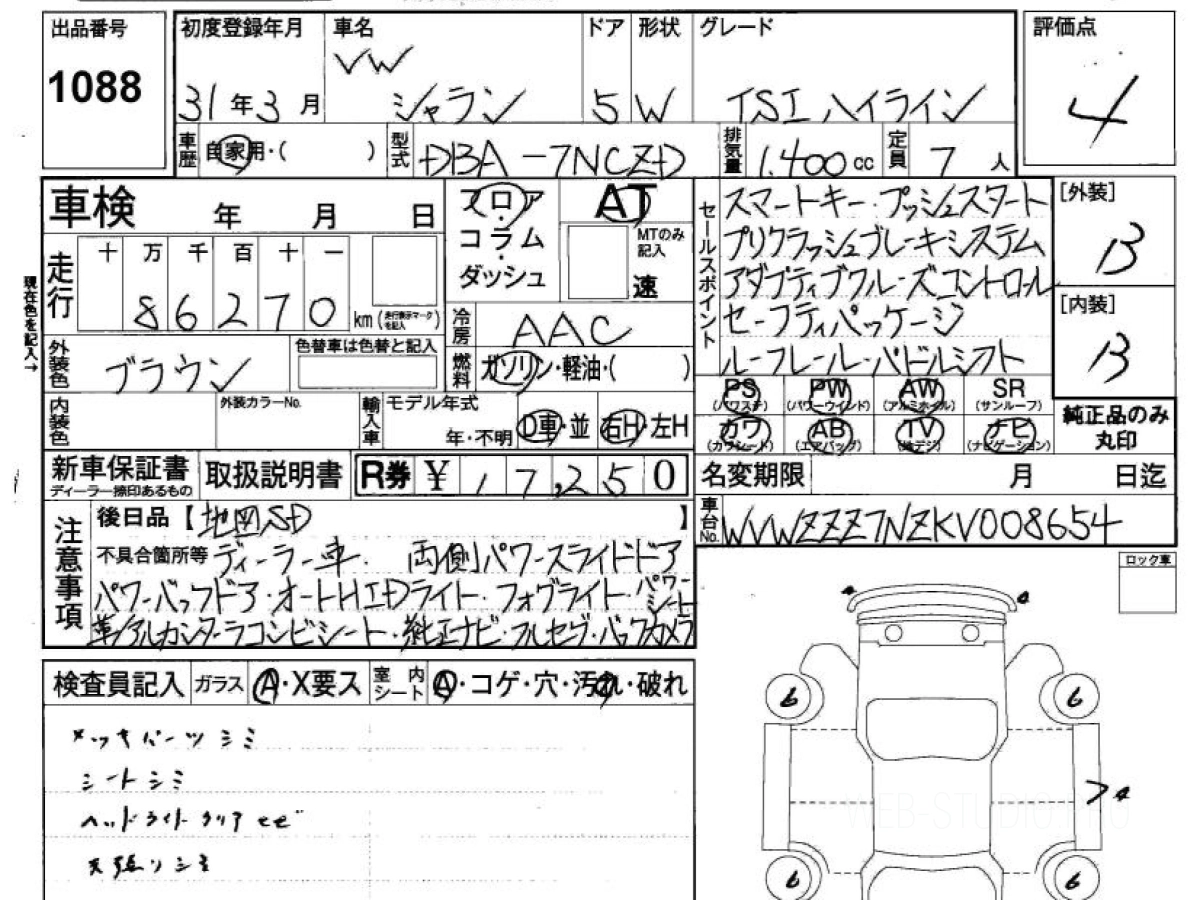 出品番号 初度登録年月 車名 ドア 形状 グレード 評価点
1088 VW
31年3月 シャラン 5 W TSI ハイライン 4
車歴 自家用・( ) 型式 DBA-7NCZD 排気量 1,400cc 定員 7人
車検 年 月 日
フロア・コラム・ダッシュ
AT
MTのみ記入
速
セールスポイント
スマートキー・プッシュスタート
プリクラッシュブレーキシステム
アダプティブクルーズコントロール
セーフティパッケージ
ルーフレール・パドルシフト
[外装]
B
[内装]
B
現在色を記入→
走行 十 万 千 百 十 一
86270 km (走行表示マークを記入)
冷房 AAC
外装色 ブラウン 色替車は色替と記入
燃料 ガソリン・軽油・( )
PS (パワステ) PW (パワーウインド) AW (アルミホイル) SR (サンルーフ)
カワ (カワシート) AB (エアバッグ) TV (地デジ) ナビ (ナビゲーション)
純正品のみ丸印
内装色 外装カラーNo. 輸入車 モデル年式 年・不明 D車・並 右H・左H
新車保証書 ディーラー捺印あるもの 取扱説明書 R券 ¥ 17,250
名変期限 月 日迄
車台No. WVWZZZ7NZKV008654
注意事項
後日品【地図SD 】
不具合箇所等 ディーラー車. 両側パワースライドドア
パワーバックドア・オートHIDライト・フォグライト・パワーシート
革/アルカンターラコンビシート・純正ナビ・フルセグ・バックカメラ
ロック車
検査員記入 ガラス A・X要ス 室内シート A・コゲ・穴・汚れ・破れ
メッキパーツシミ
シートシミ
ヘッドライトクリア
天張りシミ
6 6
4
6 6
WEB-STUDIO.PRO